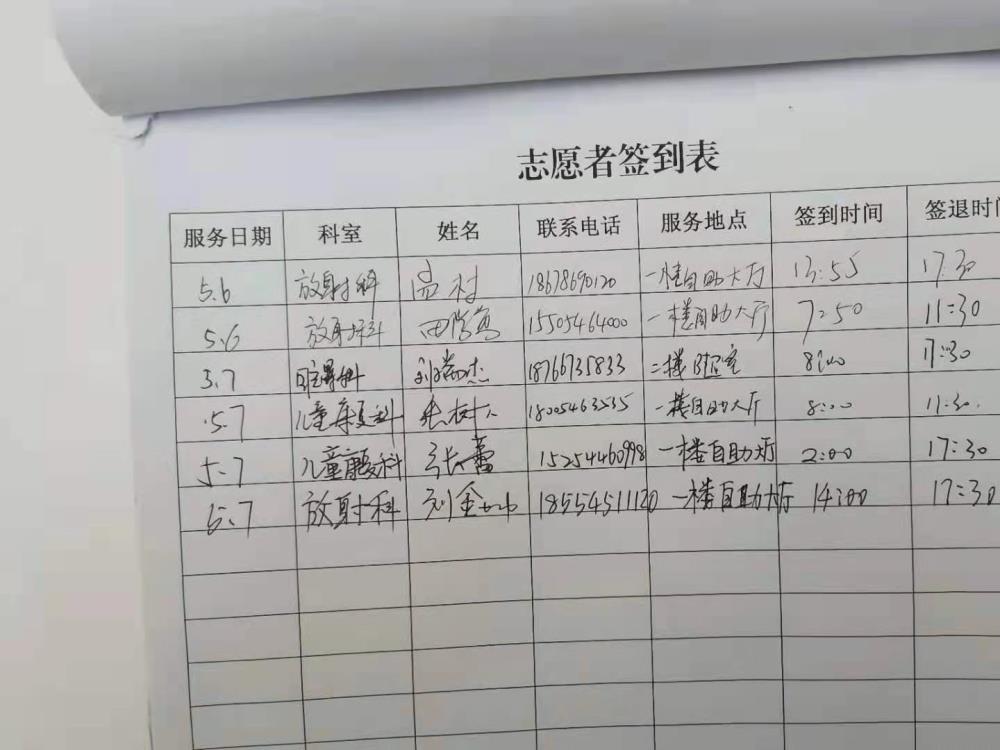 志愿者签到表
服务日期 科室 姓名 联系电话 服务地点 签到时间 签退时间
5.6 放射科 18678690120 一楼自助大厅 13:55 17:30
5.6 放射科 15505464000 一楼自助大厅 7:50 11:30
3.7 18766735833 二楼 8:00 17:30
5.7 儿童康复科 张树人 18005463535 一楼自助大厅 8:00 11:30
5.7 儿童康复科 张蕾 15254460998 一楼自助大厅 2:00 17:30
5.7 放射科 18554511120 一楼自助大厅 14:00 17:30